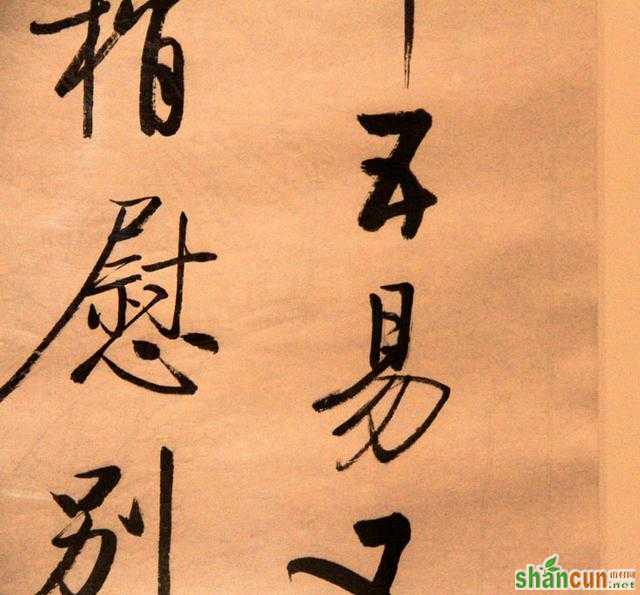 五易又
稍慰别
shancun
山村网
.net